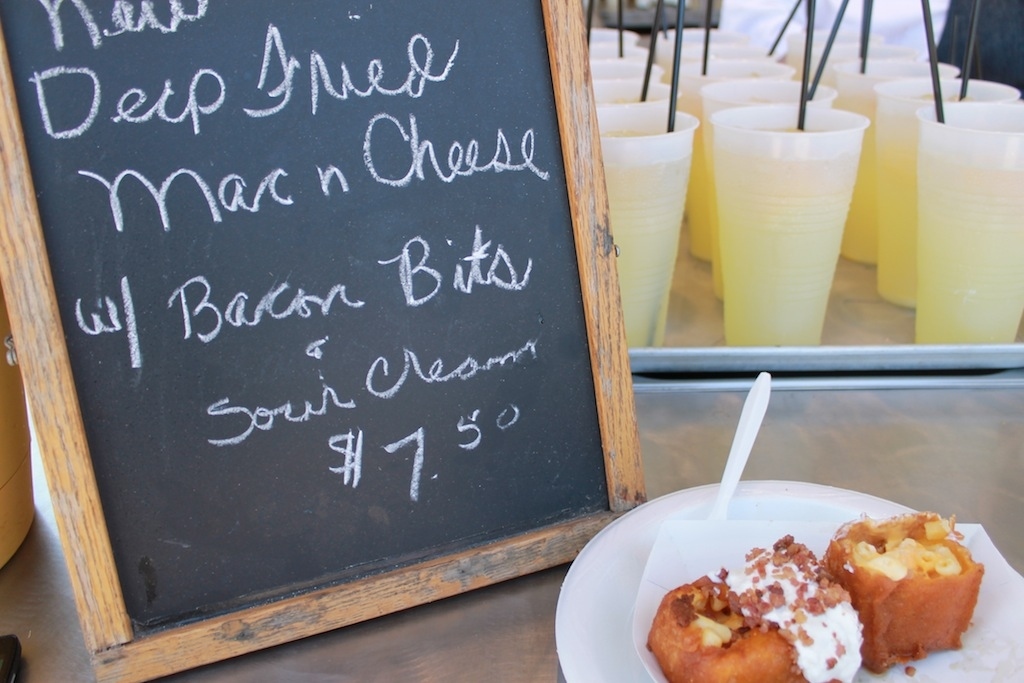 New
Deep Fried
Mac n Cheese
w/ Bacon Bits
&
Sour Cream
$7.50